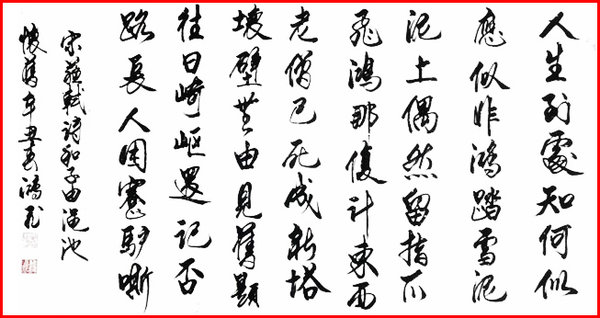 人生到處知何似
應似非鴻踏雪泥
泥上偶然留指爪
飛鴻那復計東西
老僧已死成新塔
壞壁無由見舊題
往日崎嶇還記否
路長人困蹇驢嘶
宋蘇軾詩和子由澠池
懷舊辛丑春鴻飛